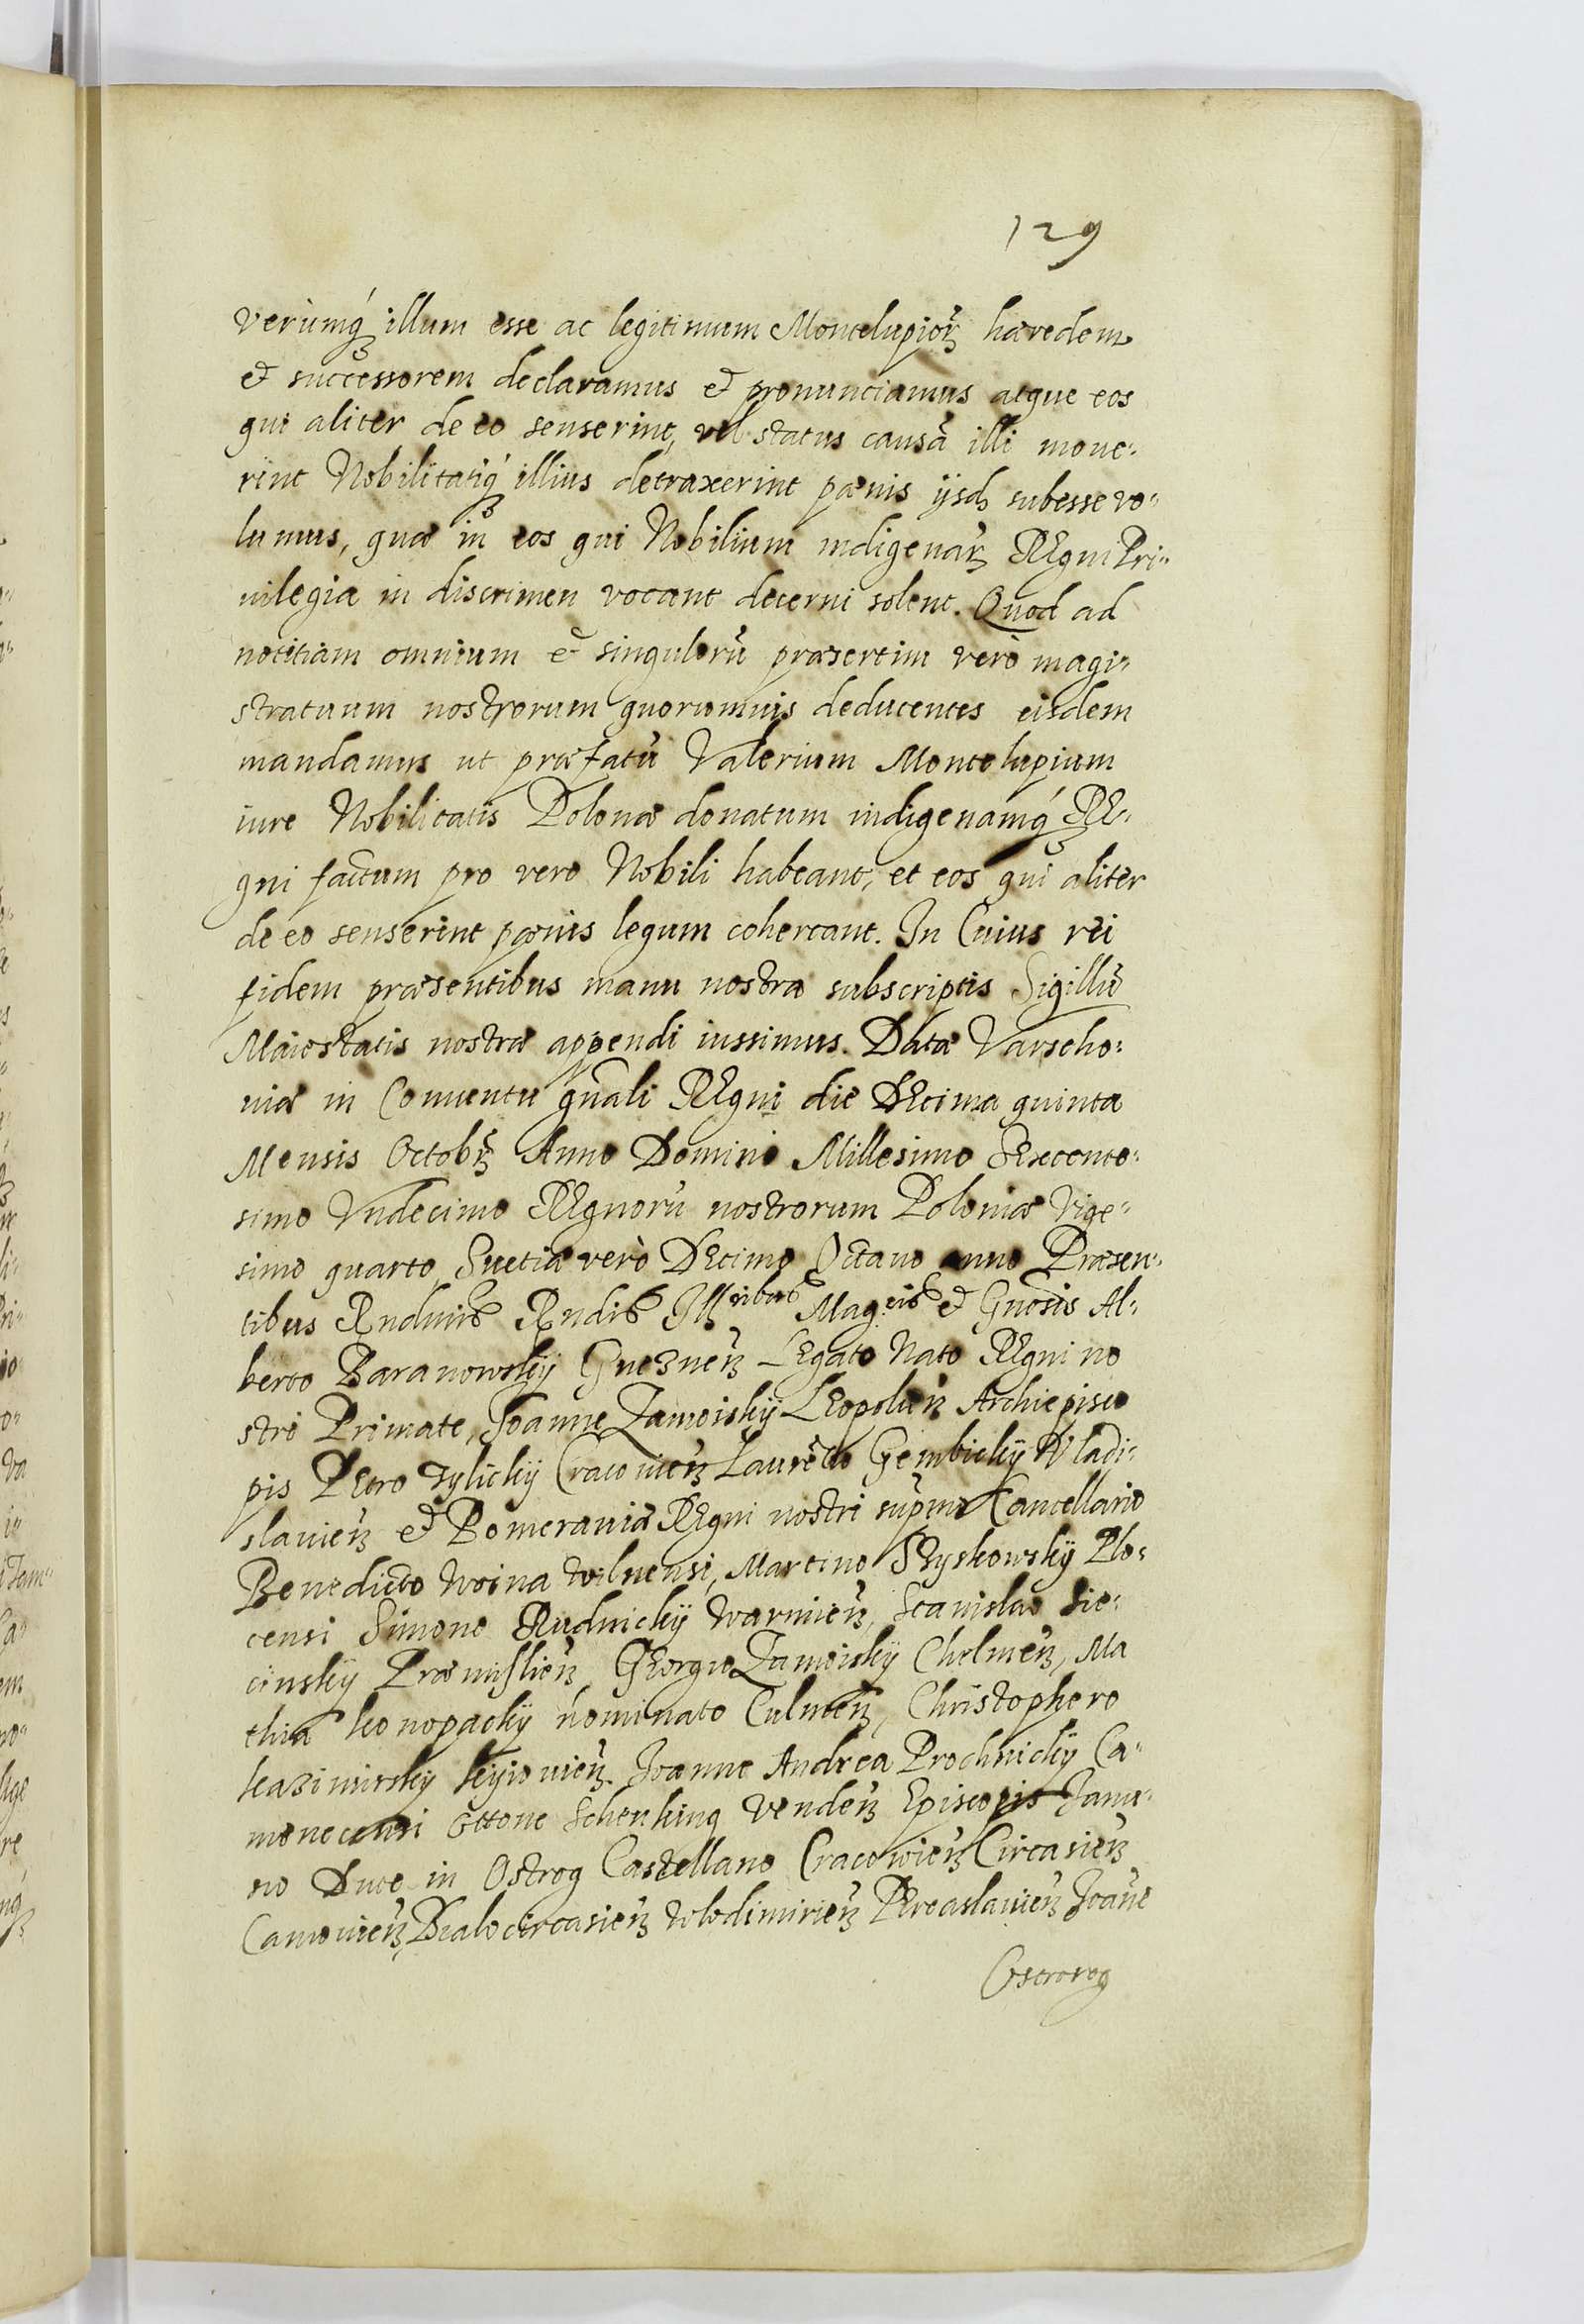 129
verùmq́ꝫ illum esse ac legitimum Montelupior̃ꝫ hæredem
et successorem declaramus et pronunciamus atque eos
qui aliter de eo senserint, vel status causã illi moue-
rint Nobilitatiq́ꝫ illius detraxerint pænis ijsdꝫ subesse vo-
lumus, quæ in eos qui Nobilium indigenar̃ꝫ REgni Pri-
uilegia in discrimen vocant decerni solent. Quod ad
notitiam omnium et singulorũ præsertim verò magi-
stratuum nostrorum quorumuis deducentes eisdem
mandamus ut præfatũ Valerium Montelupium
iure Nobilitatis Polonæ donatum indigenamq́ꝫ RE-
gni factum pro vero Nobili habeant, et eos qui aliter
de eo senserint pænis legum coherceant. In Cuius rei
fidem præsentibus manu nostra subscriptis Sigillũ
Maiestatis nostræ appendi iussimus. Datæ Varscho-
uiæ in Conuentu gñali REgni die DEcima quinta
Mensis Octobr̃ꝫ Anno Domini Millesimo SExcente-
simo Vndecimo REgnorũ nostrorum Poloniæ Vige-
simo quarto, Suetiæ verò DEcimo Octauo anno Præsen-
tibus Rndmis Rndis Illribus Mageis et Gñosis Al-
berto Baranowskij Gnezneñꝫ LEgato Nato REgni no
stri Primate, Joanne Zamoiskij LEopolieñꝫ Archiepisco
pis PEtro Tylickij Cracouieñꝫ Laurẽtio Gembickij Vladi-
slauieñꝫ et Pomeraniæ REgni nostri supmo Cancellario
Benedicto Woina Wilnensi, Martino SZyskowskij Plo-
censi Simone Rudnickij Warmieñꝫ, Stanislao Sie-
cinskij Præmislieñꝫ GEorgio Zamoiskij Chelmeñꝫ, Ma
thia Konopackij nominato Culmeñꝫ, Christophero
Kazimirskij Kijouieñꝫ. Joanne Andrea Prochnickij Ca-
menecensi Ottone Schenking Vendeñꝫ Episcopis Janu-
sio Duce in Ostrog Castellano Cracowieñꝫ Circasieñꝫ
Canouieñꝫ, Bialocircasieñꝫ Wlodimirieñꝫ PEreaslauieñꝫ Joañe
Ostrorog